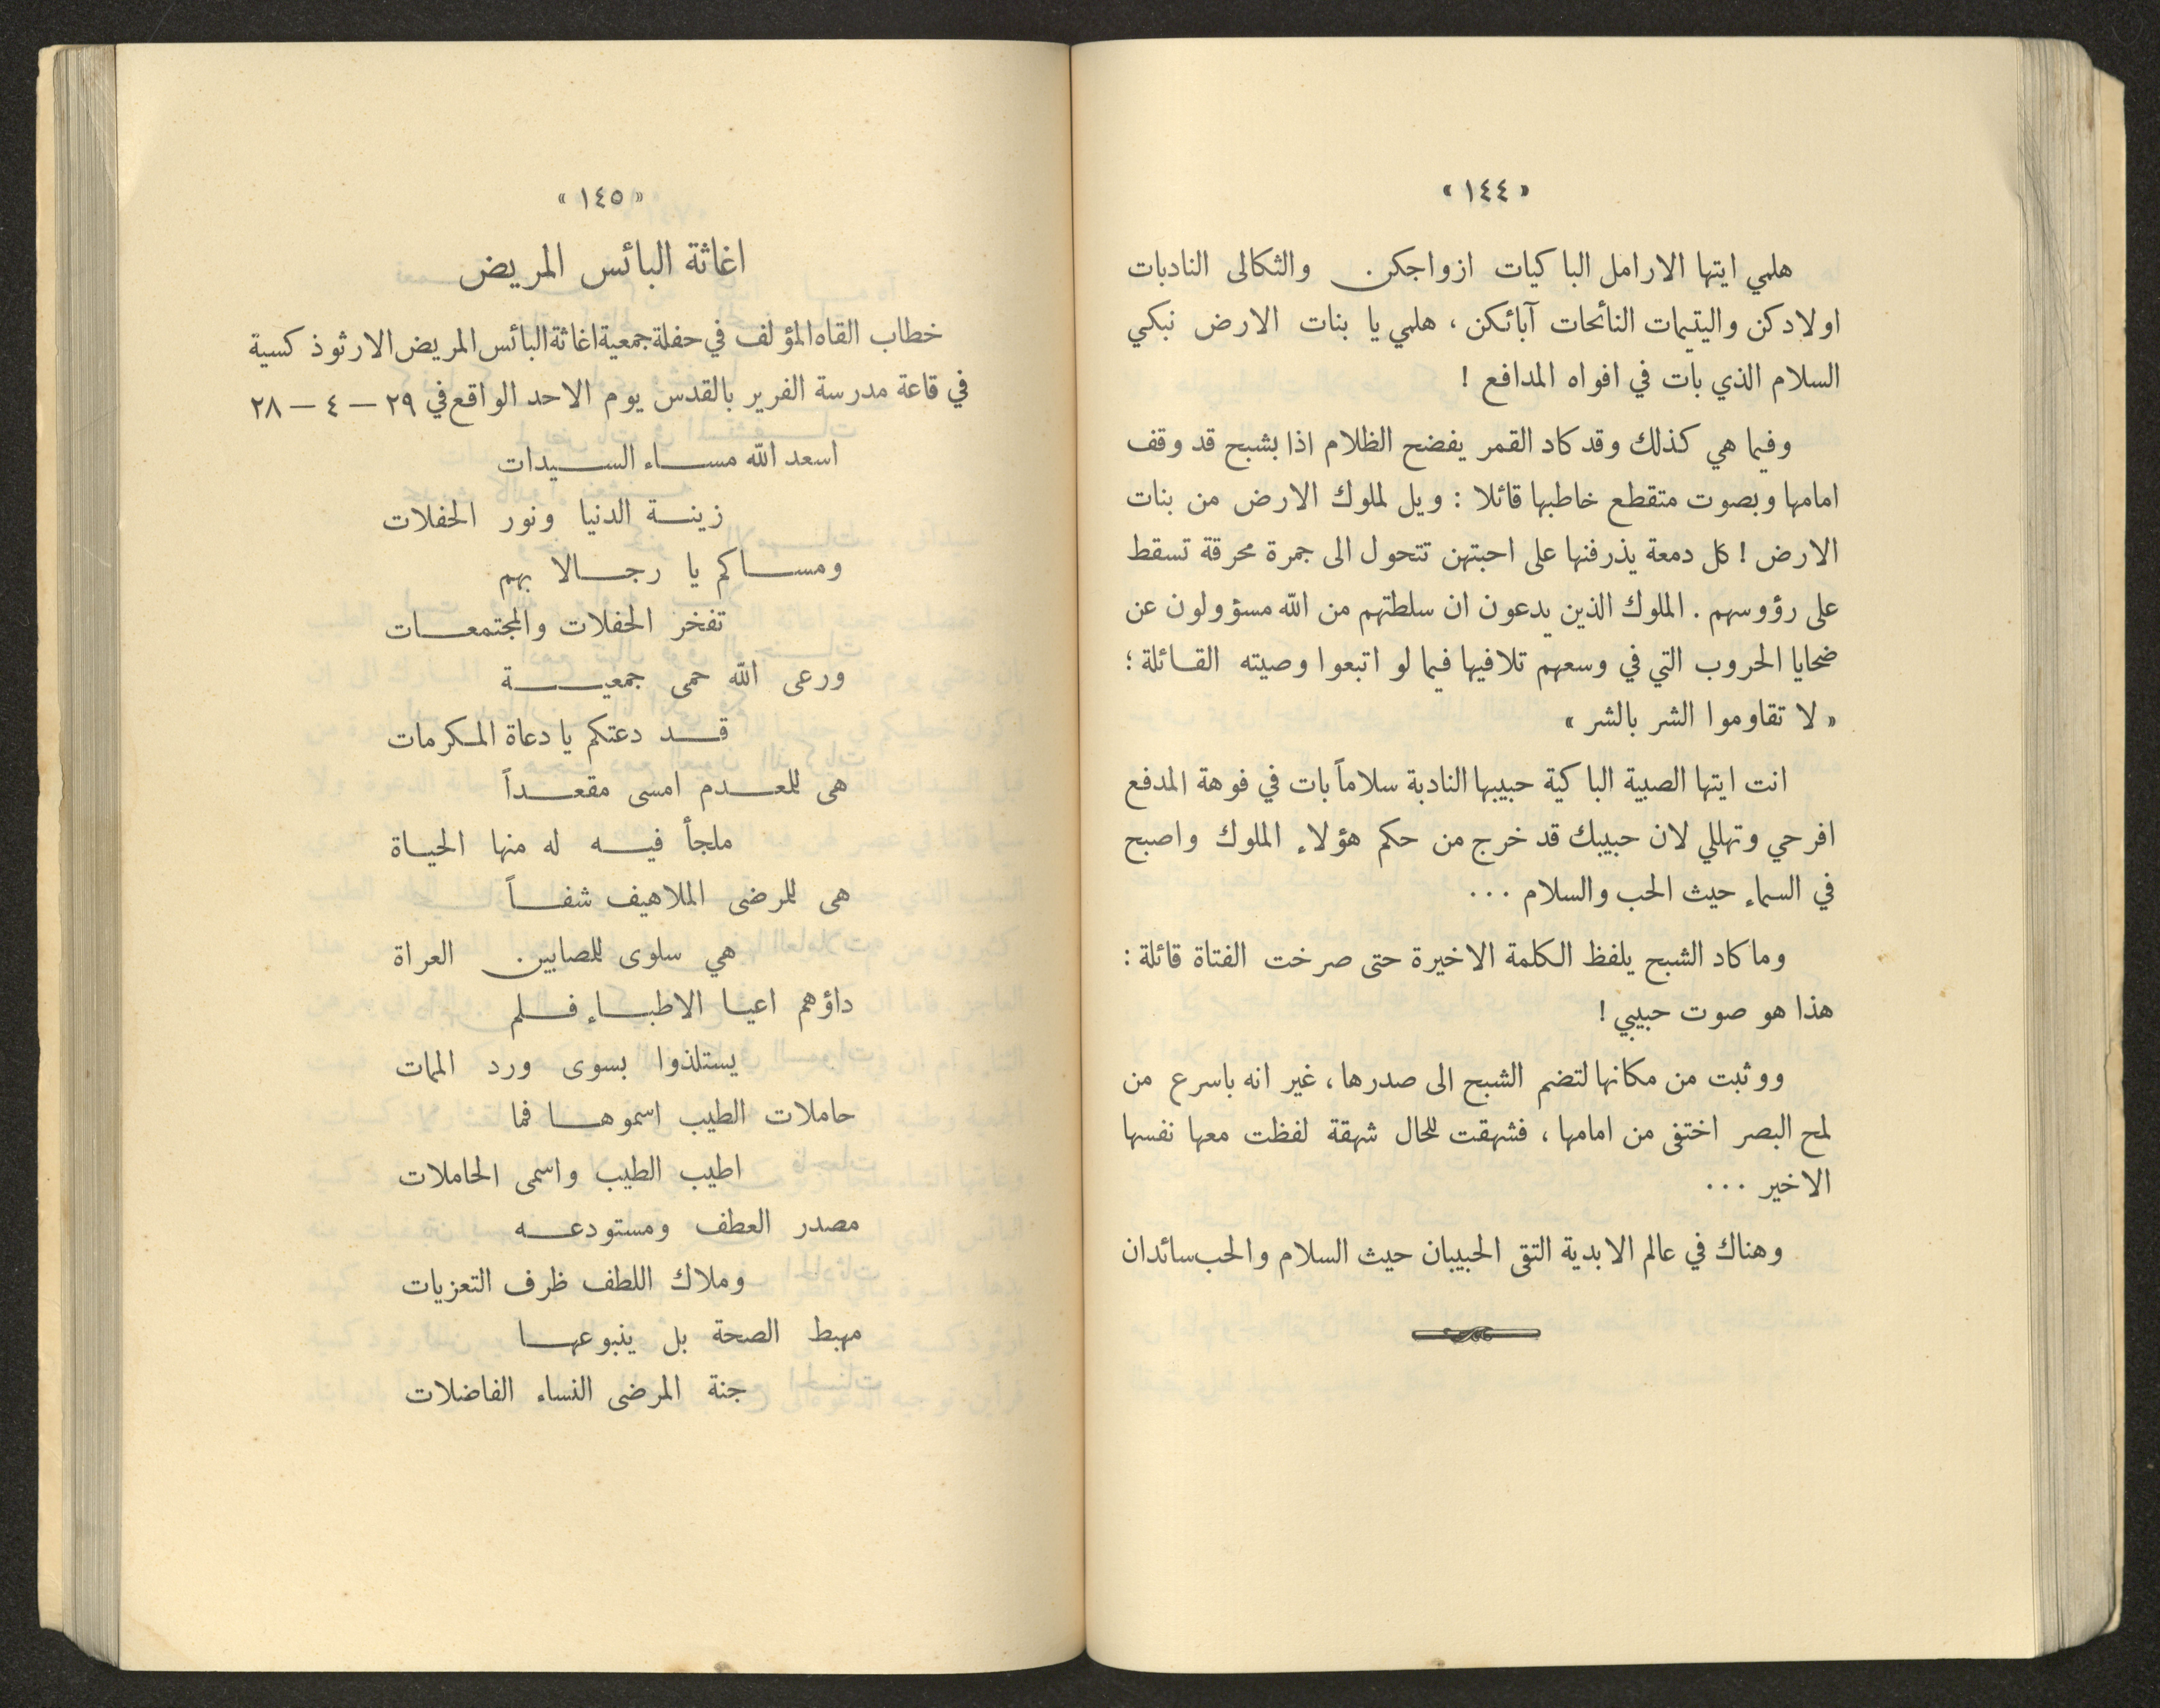 « ١٤٤ »
هلمي ايتها الارامل الباكيات ازواجكن . والثكالى النادبات
اولادكن واليتيمات النائحات آبائكن ، هلمي يا بنات الارض نبكي
السلام الذي بات في افواه المدافع !
وفيما هي كذلك وقد كاد القمر يفضح الظلام اذا بشبح قد وقف
امامها وبصوت متقطع خاطبها قائلا : ويل لملوك الارض من بنات
الارض ! كل دمعة يذرفنها على احبتهن تتحول الى جمرة محرقة تسقط
على رؤوسهم . الملوك الذين يدعون ان سلطتهم من الله مسؤولون عن
ضحايا الحروب التي في وسعهم تلافيها فيما لو اتبعوا وصيته القائلة ؛
« لا تقاوموا الشر بالشر »
انت ايتها الصبية الباكية حبيبها النادبة سلاماً بات في فوهة المدفع
افرحي وتهللي لان حبيبك قد خرج من حكم هؤلاء الملوك واصبح
في السماء حيث الحب والسلام ...
وما كاد الشبح يلفظ الكلمة الاخيرة حتى صرخت الفتاة قائلة :
هذا هو صوت حبيبي !
ووثبت من مكانها لتضم الشبح الى صدرها ، غير انه باسرع من
لمح البصر اختفى من امامها ، فشهقت للحال شهقة لفظت معها نفسها
الاخير ...
وهناك في عالم الابدية التقى الحبيبان حيث السلام والحب سائدان
« ١٤٥ »
اغاثة البائس المريض
خطاب القاه المؤلف في حفلة جمعية اغاثة البائس المريض الارثوذكسية
في قاعة مدرسة الفرير بالقدس يوم الاحد الواقع في ٢٩ – ٤ – ٢٨
اسعد الله مساء السيدات
زينة الدنيا ونور الحفلات
ومساكم يا رجالا بهم
تفخر الحفلات والمجتمعات
ورعى الله حمى جمعية
قد دعتكم يا دعاة المكرمات
هي للمعدم امسى مقعداً
ملجأ فيه له منها الحياة
هي للمرضى الملاهيف شفاً
هي سلوى للصابين . العراة
داؤهم اعيا الاطباء فلم
يستلذوا بسوى ورد الممات
حاملات الطيب اسموها فما
اطيب الطيب واسمى الحاملات
مصدر العطف ومستودعه
وملاك اللطف ظرف التعزيات
مهبط الصحة بل ينبوعها
جنة المرضى النساء الفاضلات